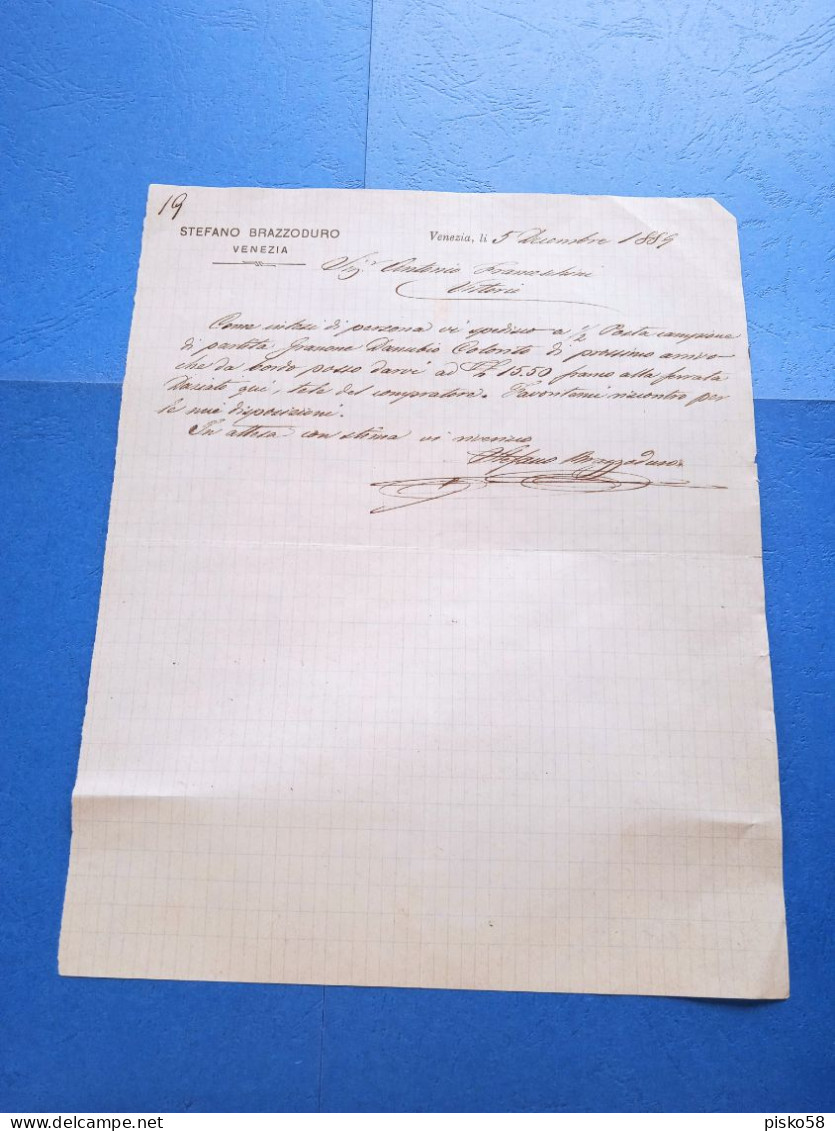 19
STEFANO BRAZZODURO
VENEZIA
Venezia, li 5 Dicembre 1889
Sigr Antonio Franceschini
Vittorio
Come intesi di persona vi spedisco a ½ Posta campione
di partita Granone Danubio Colorito di prossimo arrivo
che da bordo posso darvi ad £ 15.50 franco alla ferrata
Daziato qui, tele del compratore. Favoritemi riscontro per
le mie disposizioni.
In attesa con stima vi riverisco
Stefano Brazzoduro
pisko58